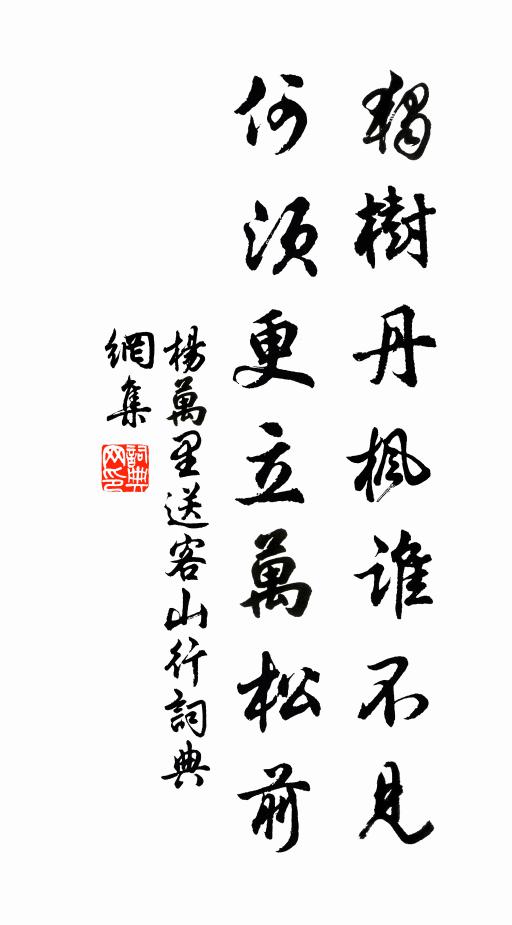 獨樹丹楓誰不見
何須更立萬松前
楊萬里送客山行詞典
網集
詞典
网印